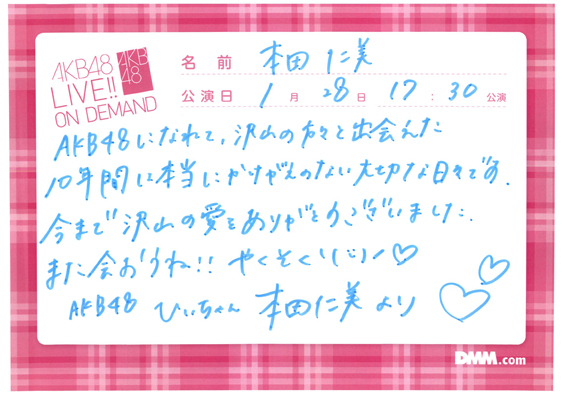 AKB48
LIVE!!
ON DEMAND
AKB
48
名前 本田 仁美
公演日 1月 28日 17:30 公演
AKB48になれて、沢山の方々と出会えた
10年間は本当にかけがえのない大切な日々です.
今まで沢山の愛をありがとうございました.
また会おうね!! やくそく！(¨)ノ♡
AKB48 ひぃちゃん 本田仁美より
DMM.com